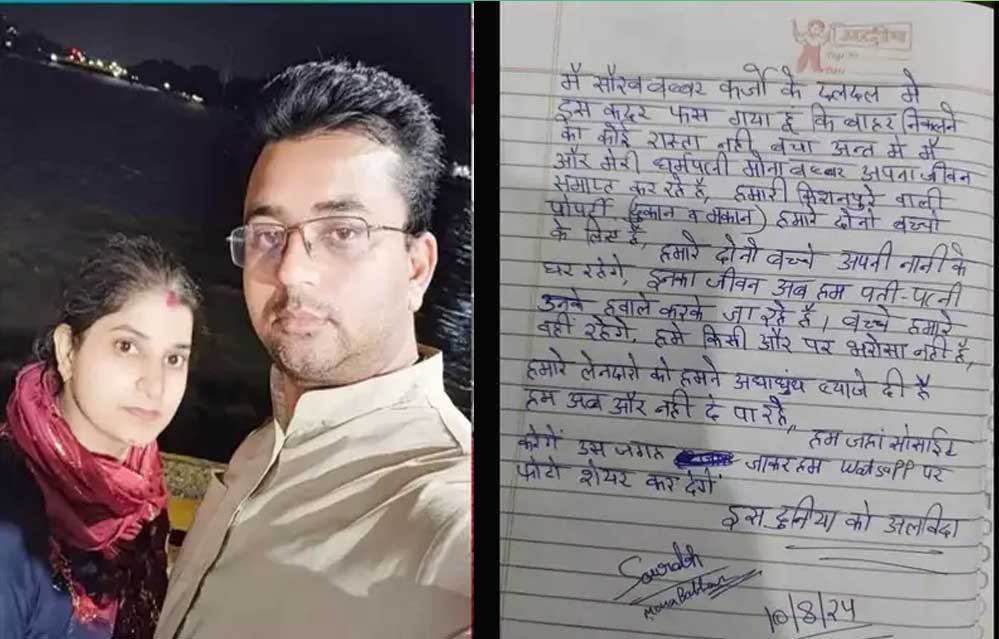 मै सौरव बब्बर कर्जो के दलदल मे
इस कदर फस गया हूं कि बाहर निकलने
का कोई रास्ता नही बचा अन्त मे मैं
और मेरी धर्मपत्नी मोना बब्बर अपना जीवन
समाप्त कर रहे है, हमारी किशनपुरे वाली
प्रोपर्टी (दुकान व मकान) हमारे दोनो बच्चो
के लिए है, हमारे दोनो बच्चे अपनी नानी के
घर रहेगे, इनका जीवन अब हम पती-पत्नी
उनके हवाले करके जा रहे है। बच्चे हमारे
वही रहेगे, हमे किसी और पर भरोसा नही है,
हमारे लेनदारो को हमने अंधाधुंध ब्याजे दी है
हम अब और नही दे पा रहे,, हम जहां सोसाईट
करेगें उस जगह जाकर हम Watsaff पर
फोटो शेयर कर देगें
इस दुनिया को अलविदा
Sourabh
Mona Babbar
10/8/24